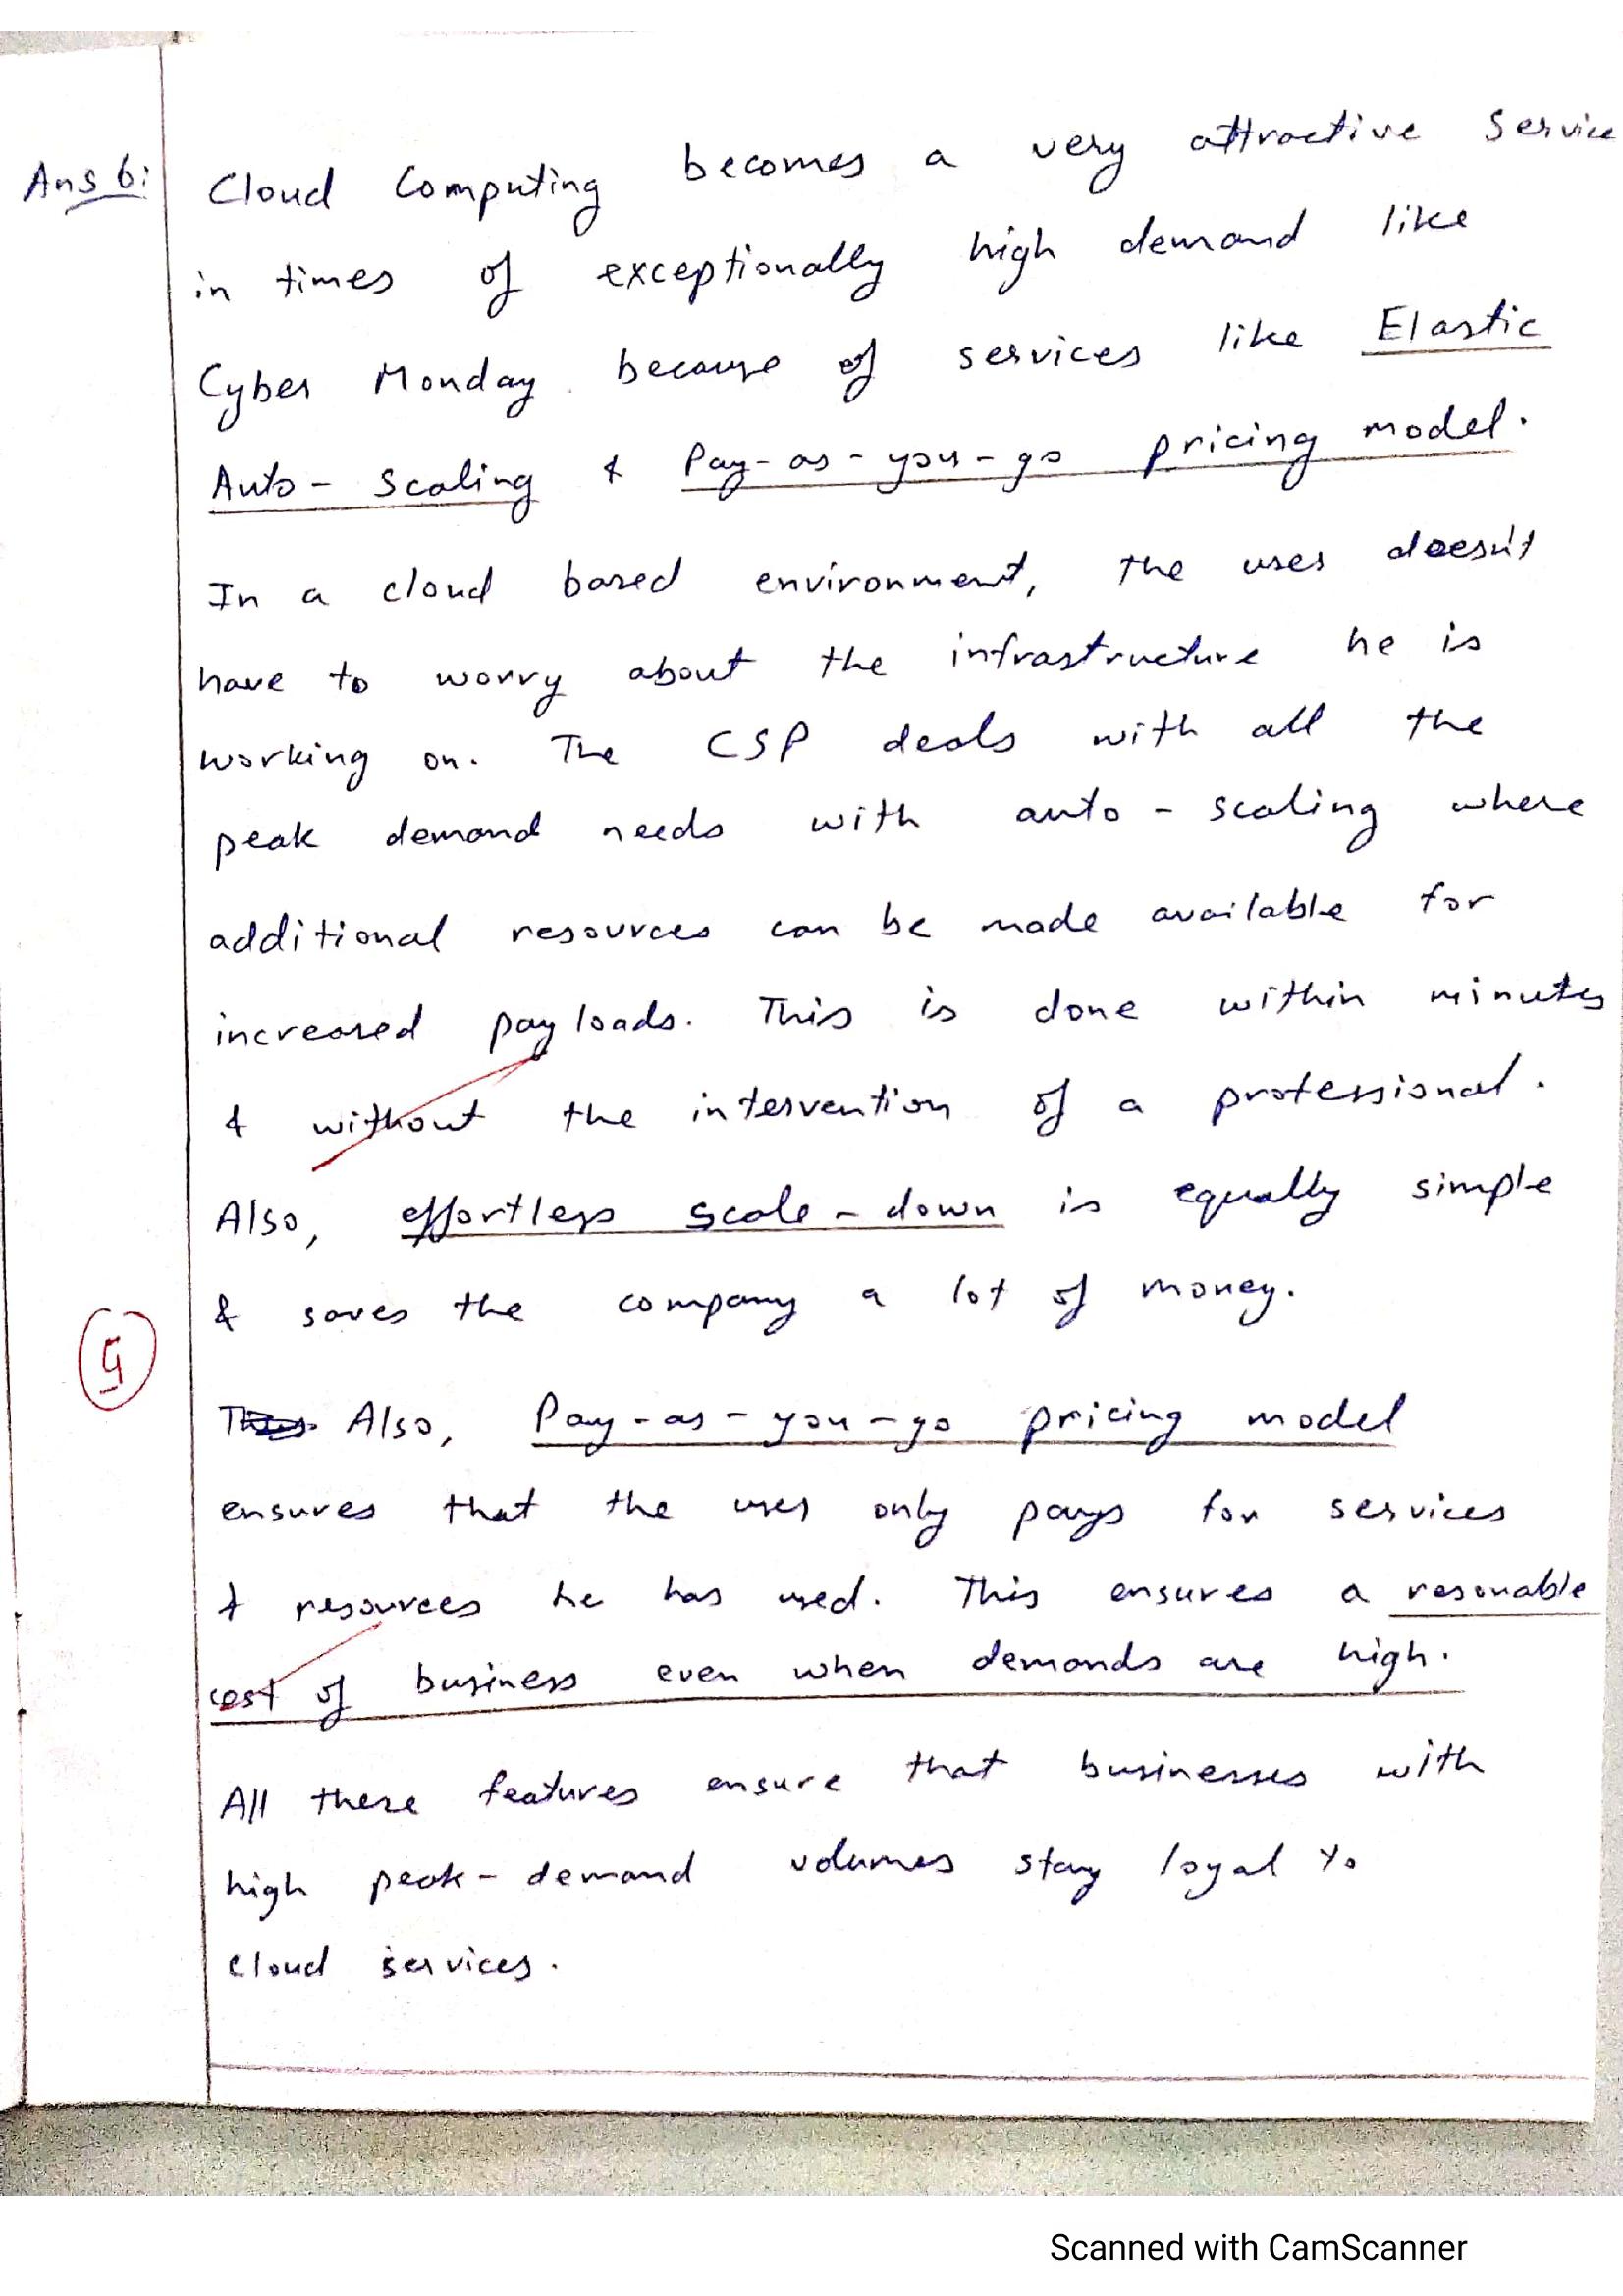 Ans 6: Cloud Computing becomes a very attractive service
in times of exceptionally high demand like
Cyber Monday because of services like Elastic
Auto-Scaling & Pay-as-you-go pricing model.
In a cloud based environment, the user doesn't
have to worry about the infrastructure he is
working on. The CSP deals with all the
peak demand needs with auto-scaling where
additional resources can be made available for
increased payloads. This is done within minutes
& without the intervention of a professional.
Also, effortless scale-down is equally simple
& saves the company a lot of money.
5
Also, Pay-as-you-go pricing model
ensures that the user only pays for services
& resources he has used. This ensures a resonable
cost of business even when demands are high.
All these features ensure that businesses with
high peak-demand volumes stay loyal to
cloud services.
Scanned with CamScanner